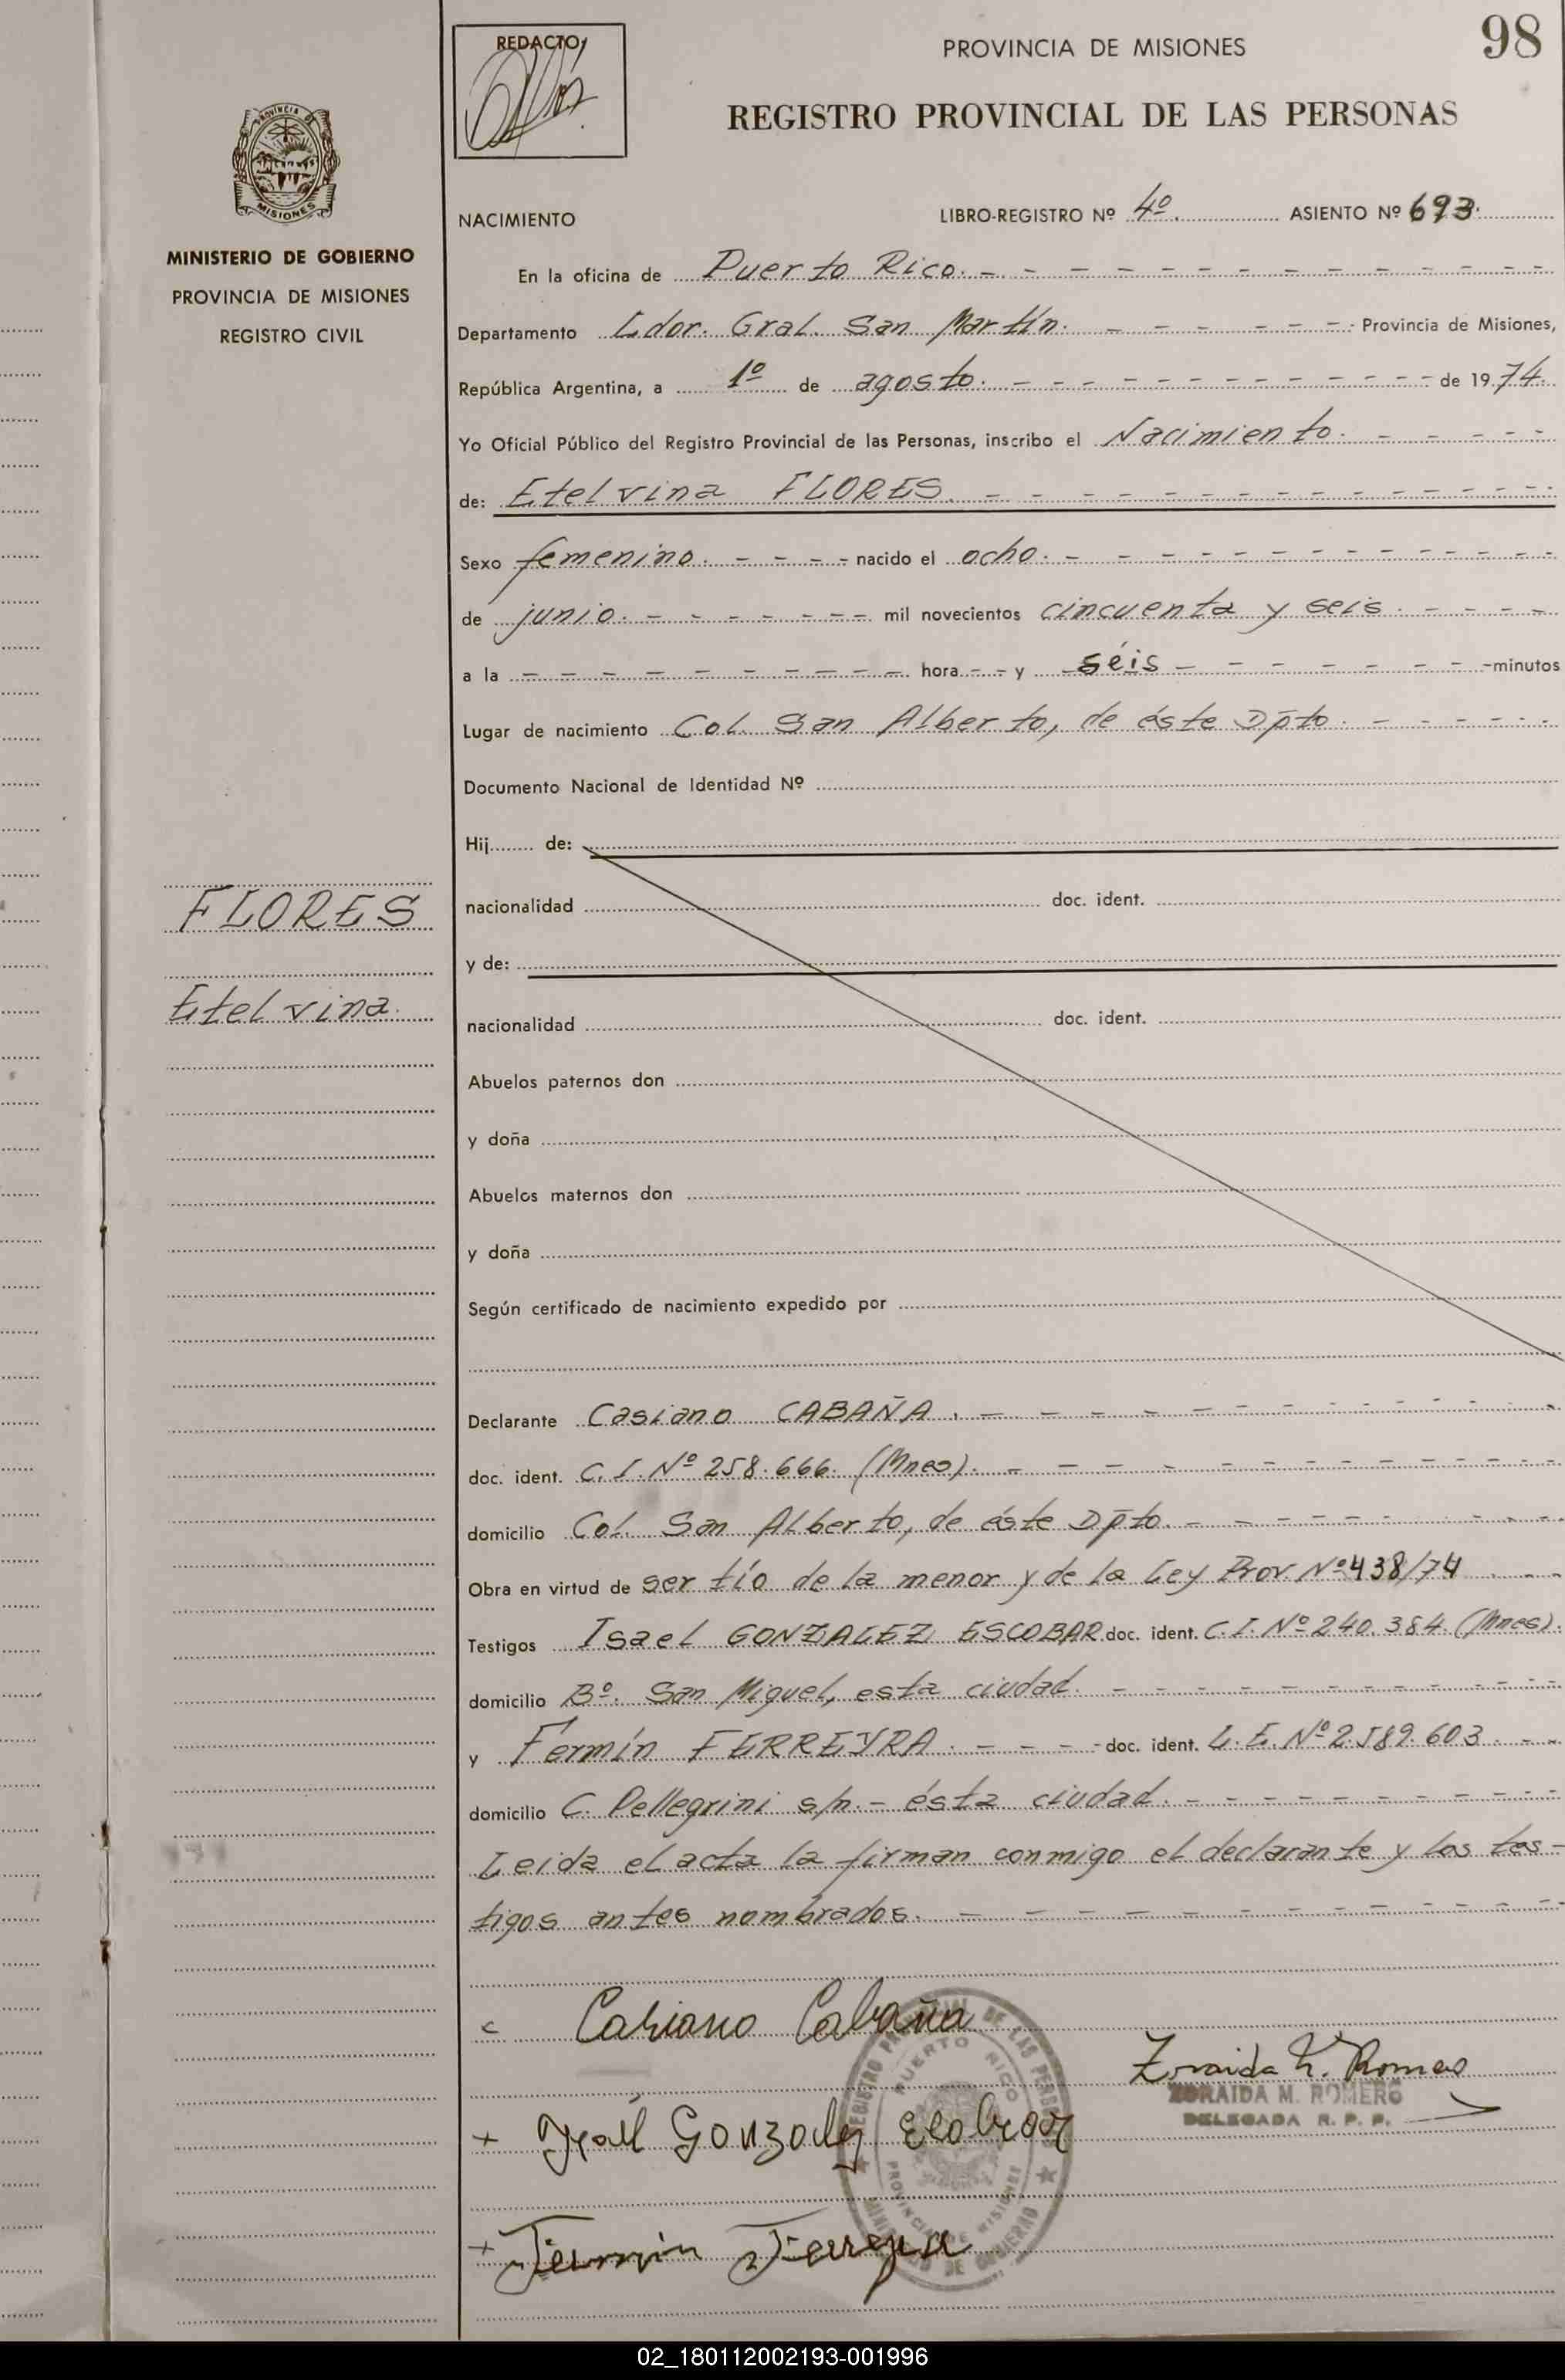 98
REDACTO
PROVINCIA DE MISIONES
REGISTRO PROVINCIAL DE LAS PERSONAS
PROVINCIA DE
MISIONES
MINISTERIO DE GOBIERNO
PROVINCIA DE MISIONES
REGISTRO CIVIL
NACIMIENTO LIBRO-REGISTRO Nº 4º. ASIENTO Nº 693.
En la oficina de Puerto Rico.
Departamento Ldor. Gral. San Martín. Provincia de Misiones,
República Argentina, a 1º de agosto. de 1974.
Yo Oficial Público del Registro Provincial de las Personas, inscribo el Nacimiento.
de: Etelvina FLORES.
Sexo femenino. nacido el ocho.
de junio. mil novecientos cincuenta y seis.
a la hora y séis minutos
Lugar de nacimiento Col. San Alberto, de éste Dpto.
Documento Nacional de Identidad Nº
Hij de:
FLORES
nacionalidad doc. ident.
y de:
Etelvina.
nacionalidad doc. ident.
Abuelos paternos don
y doña
Abuelos maternos don
y doña
Según certificado de nacimiento expedido por
Declarante Casiano CABAÑA.
doc. ident. C. I. Nº 258.666. (Mnes).
domicilio Col. San Alberto, de éste Dpto.
Obra en virtud de ser tío de la menor y de la Ley Prov. Nº 438/74
Testigos Isael GONZALEZ ESCOBAR doc. ident. C. I. Nº 240.384. (Mnes).
domicilio Bº. San Miguel, esta ciudad.
y Fermín FERREYRA. doc. ident. L. E. Nº 2.589.603.
domicilio C. Pellegrini s/n.- ésta ciudad.
Leida el acta la firman conmigo el declarante y los tes-
tigos antes nombrados.
Casiano Cabaña
Zoraida M. Romero
ZORAIDA M. ROMERO
DELEGADA R. P. P.
REGISTRO PROVINCIAL DE LAS PERSONAS
PUERTO RICO
PROVINCIA DE MISIONES
MINISTERIO DE GOBIERNO
+ Isael Gonzalez Escobar
+ Fermin Ferreyra
02_180112002193-001996